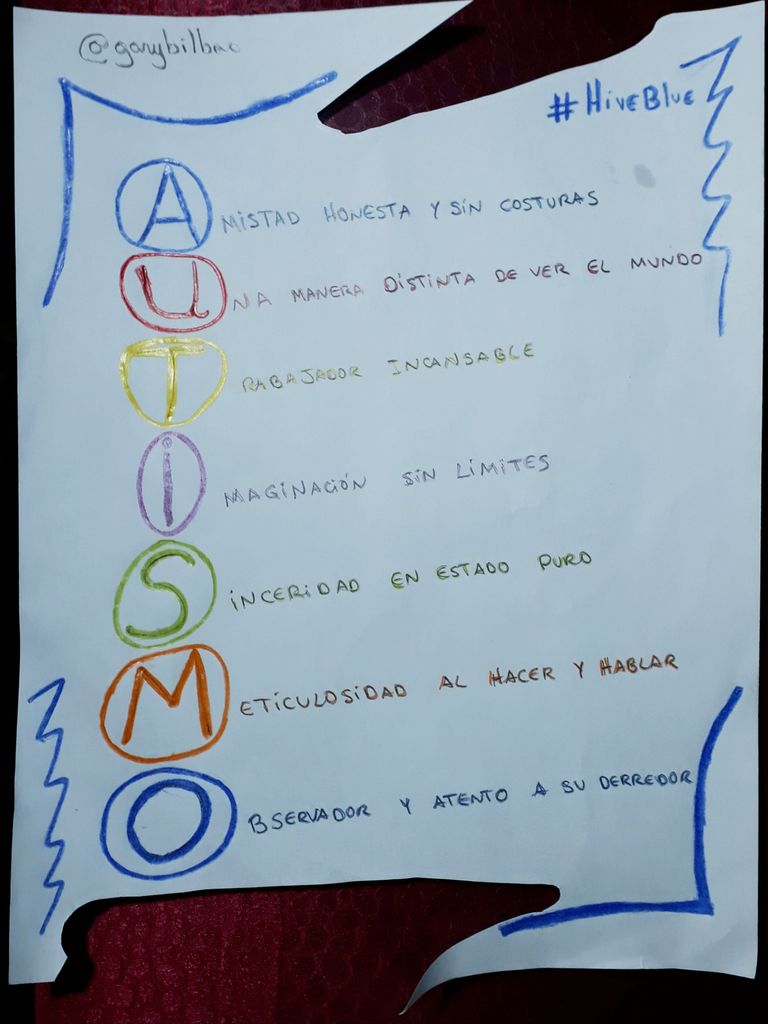 @garybilbao
#HiveBlue
AMISTAD HONESTA Y SIN COSTURAS
UNA MANERA DISTINTA DE VER EL MUNDO
TRABAJADOR INCANSABLE
IMAGINACIÓN SIN LÍMITES
SINCERIDAD EN ESTADO PURO
METICULOSIDAD AL HACER Y HABLAR
OBSERVADOR Y ATENTO A SU DERREDOR